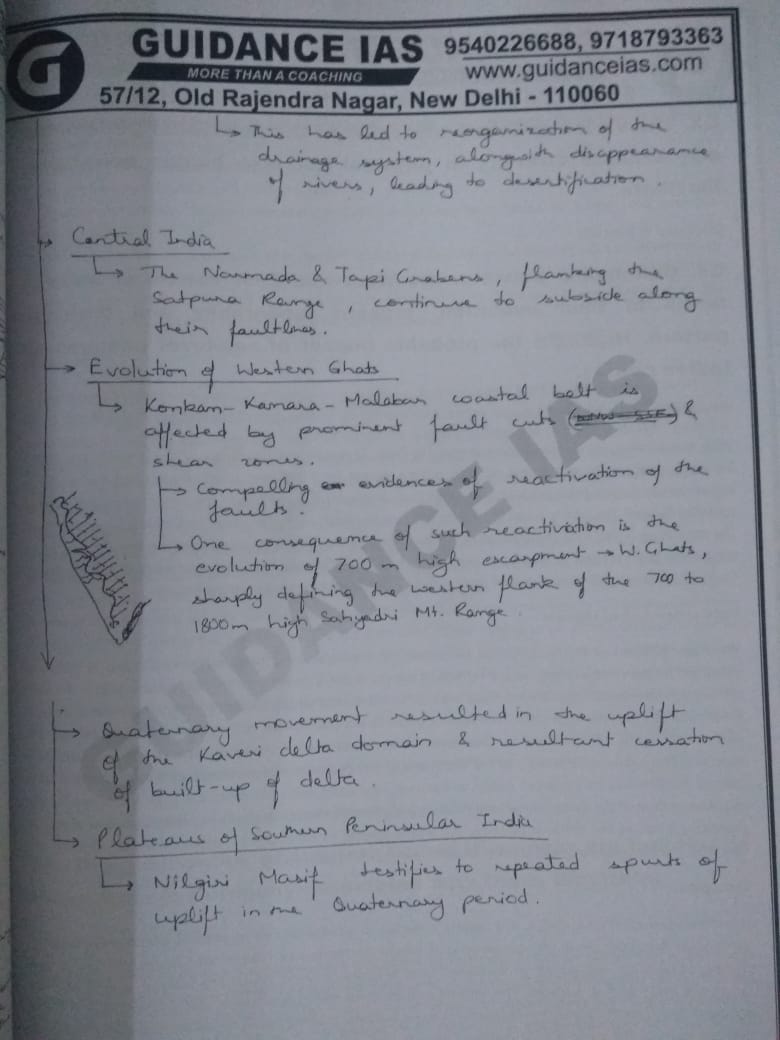 GUIDANCE IAS
9540226688, 9718793363
MORE THAN A COACHING
www.guidanceias.com
57/12, Old Rajendra Nagar, New Delhi - 110060
↳ This has led to reorganization of the
drainage system, alongwith disappearance
of rivers, leading to desertification.
→ Central India
↳ The Narmada & Tapi Grabens, flanking the
Satpura Range, continue to subside along
their faultlines.
→ Evolution of Western Ghats
↳ Konkan-Kanara-Malabar coastal belt is
affected by prominent fault cuts &
shear zones.
→ Compelling evidences of reactivation of the
faults.
↳ One consequence of such reactivation is the
evolution of 700 m high escarpment → W. Ghats,
sharply defining the western flank of the 700 to
1800m high Sahyadri Mt. Range
→ Quaternary movement resulted in the uplift
of the Kaveri delta domain & resultant cessation
of built-up of delta.
→ Plateaus of Southern Peninsular India
↳ Nilgiri Masif testifies to repeated spurts of
uplift in the Quaternary period.
GUIDANCE IAS